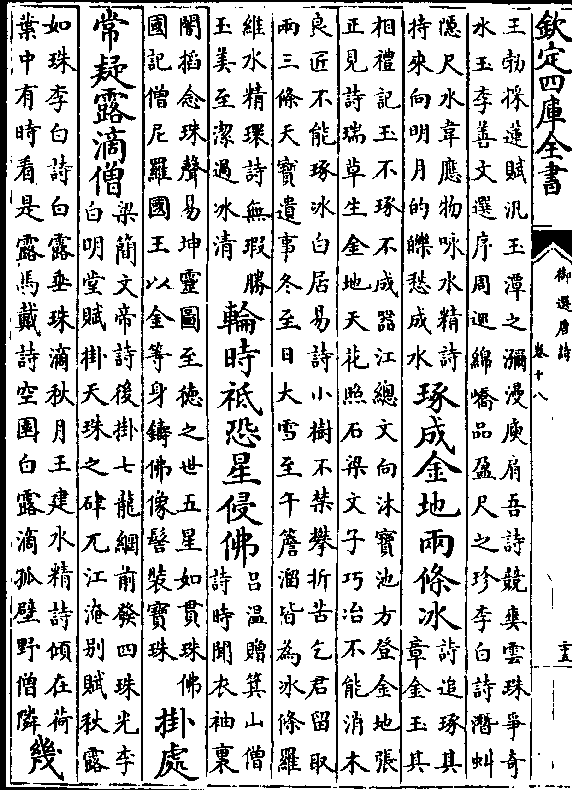 欽定四庫全書
御選唐詩
卷十八
二十五
王勃採蓮賦汎玉潭之瀰漫庾肩吾詩競奭雲珠爭奇
水玉李善文選序周巡綿嶠品盈尺之珍李白詩潛虯
隱尺水韋應物咏水精詩
持來向明月的皪愁成水
琢成金地兩條冰
詩追琢其
章金玉其
相禮記玉不琢不成器江總文向沐寶池方登金地張
正見詩瑞草生金地天花照石梁文子巧冶不能消木
良匠不能琢冰白居易詩小樹不禁攀折苦乞君留取
兩三條天寶遺事冬至日大雪至午簷溜皆為冰條羅
維水精環詩無瑕勝
玉美至潔過冰清
輪時祗恐星侵佛
呂温贈箕山僧
詩時聞衣袖裏
闇掐念珠聲易坤靈圖至德之世五星如貫珠佛
國記僧尼羅國王以金等身鑄佛像髻裝寶珠
掛處
常疑露滴僧
梁簡文帝詩後掛七龍綱前發四珠光李
白明堂賦掛天珠之硉兀江淹别賦秋露
如珠李白詩白露垂珠滴秋月王建水精詩傾在荷
葉中有時看是露馬戴詩空園白露滴孤壁野僧隣
幾